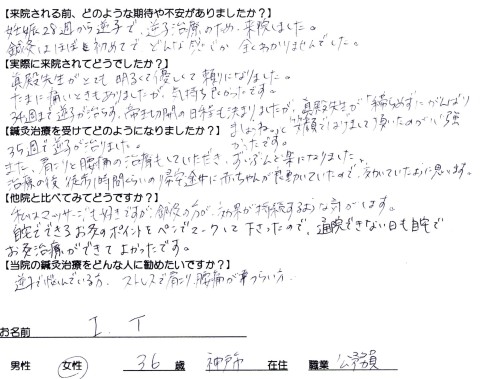 【来院される前、どのような期待や不安がありましたか?】
妊娠28週から逆子で、逆子治療のため、来院しました。
鍼灸はほぼ初めてで どんな感じか 全くわかりませんでした。
【実際に来院されてどうでしたか?】
真殿先生がとても 明るくて優しくて 頼りになりました。
たまに痛いときもありましたが、気持ち良かったです。
34週まで逆子が治らず、帝王切開の日程も決まりましたが、真殿先生が「諦らめずにがんばり
ましょねっ」と笑顔ではげまして頂いたのが心強
かったです。
【鍼灸治療を受けてどのようになりましたか?】
35週で逆子が治りました。
また、肩こりと腰痛の治療もしていただき、ずいぶんと楽になりました。
治療の後 徒歩1時間くらいの帰宅途中に赤ちゃんが 動いていたので、効いていたように思います。
【他院と比べてみてどうですか?】
私はマッサージも好きですが、鍼灸の方が、効果が持続するような気がします。
自宅でできるお灸のポイントをペンでマークして下さったので、通院できない日も自宅で
お灸治療ができて よかったです。
【当院の鍼灸治療をどんな人に勧めたいですか?】
逆子で悩んでいる方、ストレスで肩こり、腰痛がつらい方、
お名前 I. T
男性 女性 36 歳 神戸 在住 職業 公務員